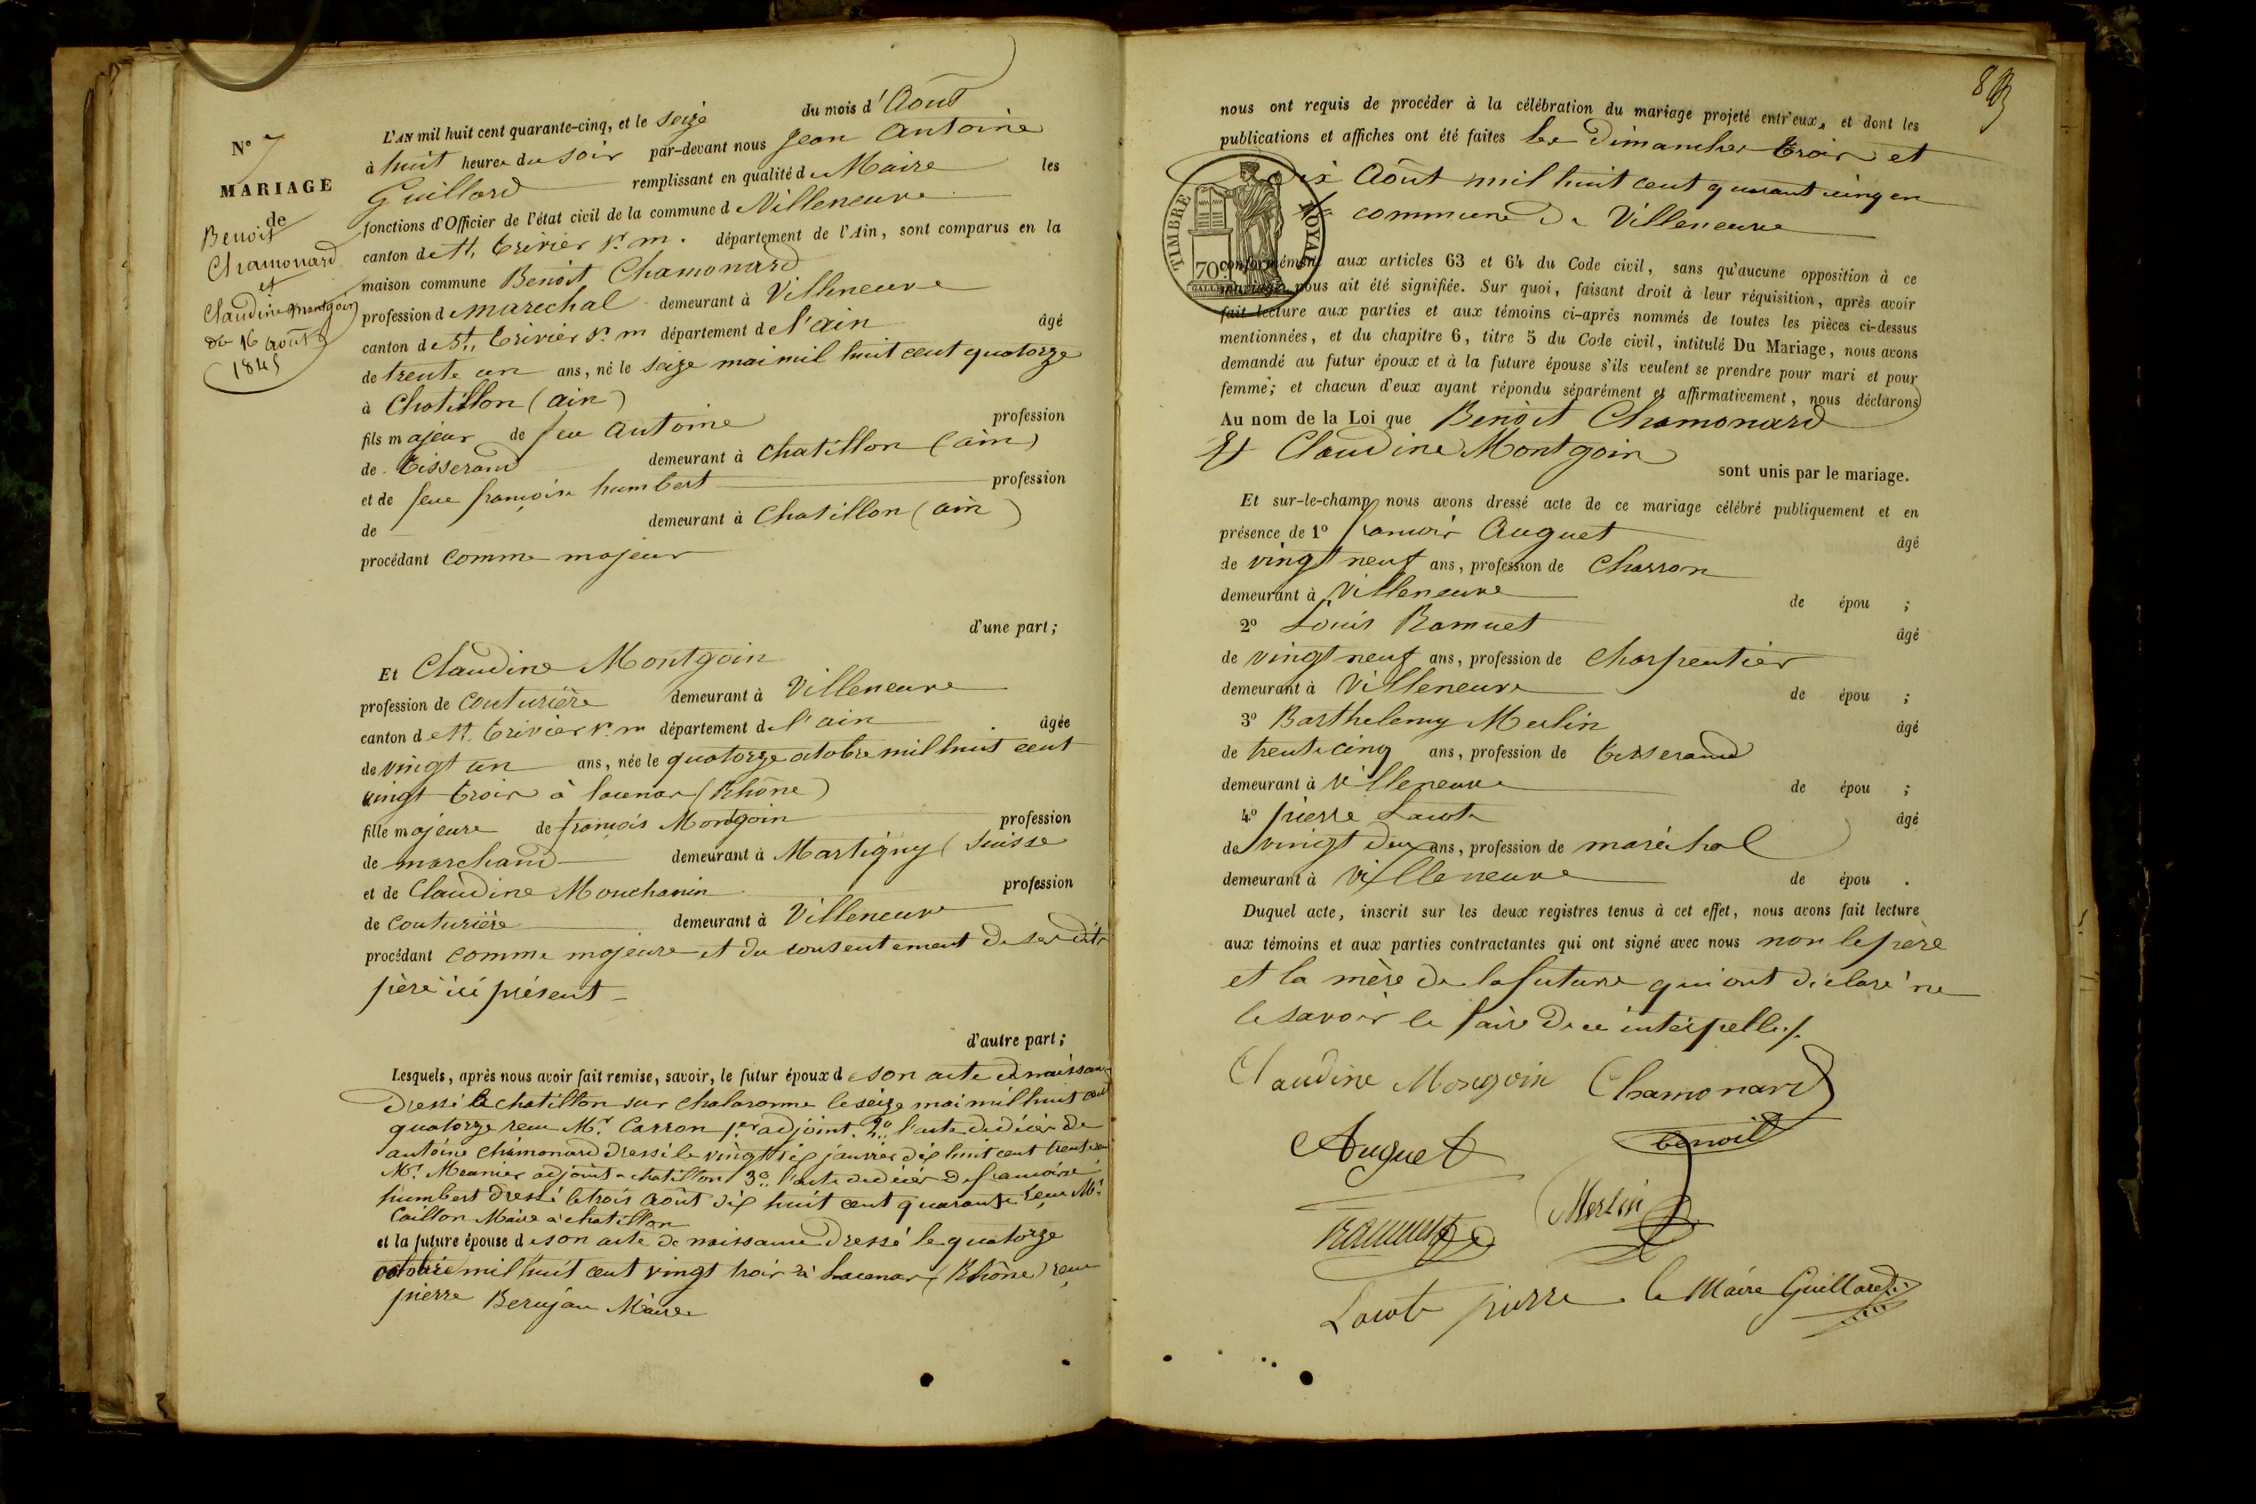 N° 7
MARIAGE
de
Benoit
Chamonard
et
Claudine Montgoin
du 16 août
1845
L'AN mil huit cent quarante-cinq, et le seize du mois d'Août
à huit heures du soir par-devant nous Jean Antoine
Guillard remplissant en qualité de Maire les
fonctions d'Officier de l'état civil de la commune de Villeneuve
canton de St. Trivier s. m. département de l'Ain, sont comparus en la
maison commune Benoit Chamonard
profession de marechal demeurant à Villeneuve
canton de St. Trivier s. m département de l'ain âgé
de trente un ans, né le seize mai mil huit cent quatorze
à Chatillon (ain)
fils majeur de feu Antoine profession
de Tisserand demeurant à Chatillon (ain)
et de feue françoise humbert profession
de demeurant à Chatillon (ain)
procédant comme majeur
d'une part;
Et Claudine Montgoin
profession de couturière demeurant à Villeneuve
canton de St. Trivier s. m département de l'ain âgée
de vingt un ans, née le quatorze octobre mil huit cent
vingt trois à lacenas (Rhône)
fille majeure de françois Montgoin profession
de marchand demeurant à Martigny (Suisse
et de Claudine Mouchanin profession
de couturière demeurant à Villeneuve
procédant comme majeure et du consentement de ses dits
père ici présent
d'autre part;
Lesquels, après nous avoir fait remise, savoir, le futur époux de son acte de naissance
dressé à chatillon sur chalaronne le seize mai mil huit cent
quatorze reçu Mr Carron 1er adjoint. 2° l'acte de décès de
antoine chamonard dressé le vingt six janvier dix huit cent trente
Mr. Meunier adjoint a chatillon 3° l'acte de décès de françoise
humbert dressé le trois août dix huit cent quarante reçu Mr
Caillon Maire à chatillon
et la future épouse de son acte de naissance dressé le quatorze
octobre mil huit cent vingt trois à Lacenas (Rhône) reçu
pierre Berujau Maire
nous ont requis de procéder à la célébration du mariage projeté entr'eux, et dont les
publications et affiches ont été faites les dimanches trois et
dix Août mil huit cent quarant cinq en
la commune de Villeneuve
TIMBRE ROYAL
70c.
conformément aux articles 63 et 64 du Code civil, sans qu'aucune opposition à ce
mariage nous ait été signifiée. Sur quoi, faisant droit à leur réquisition, après avoir
fait lecture aux parties et aux témoins ci-après nommés de toutes les pièces ci-dessus
mentionnées, et du chapitre 6, titre 5 du Code civil, intitulé Du Mariage, nous avons
demandé au futur époux et à la future épouse s'ils veulent se prendre pour mari et pour
femme; et chacun d'eux ayant répondu séparément et affirmativement, nous déclarons
Au nom de la Loi que Benoit Chamonard
Et Claudine Montgoin
sont unis par le mariage.
Et sur-le-champ nous avons dressé acte de ce mariage célébré publiquement et en
présence de 1° francois Auguet âgé
de vingt neuf ans, profession de Charron
demeurant à Villeneuve de épou ;
2° Louis Ramuet âgé
de vingt neuf ans, profession de Charpentier
demeurant à Villeneuve de épou ;
3° Barthelemy Merlin âgé
de trente cinq ans, profession de tisserand
demeurant à Villeneuve de épou ;
4° pierre Lacote âgé
de vingt deux ans, profession de maréchal
demeurant à Villeneuve de épou .
Duquel acte, inscrit sur les deux registres tenus à cet effet, nous avons fait lecture
aux témoins et aux parties contractantes qui ont signé avec nous non le père
et la mère de la future qui ont déclaré ne
le savoir le faire de ce interpellés.
Claudine Mongoin Chamonard
benoit
Auguet
Ramuet Merlin
Lacote pierre le Maire Guillard